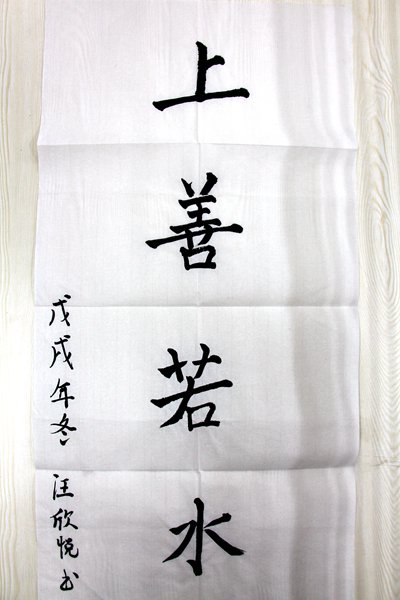 上善若水
戊戌年冬 汪欣悦书